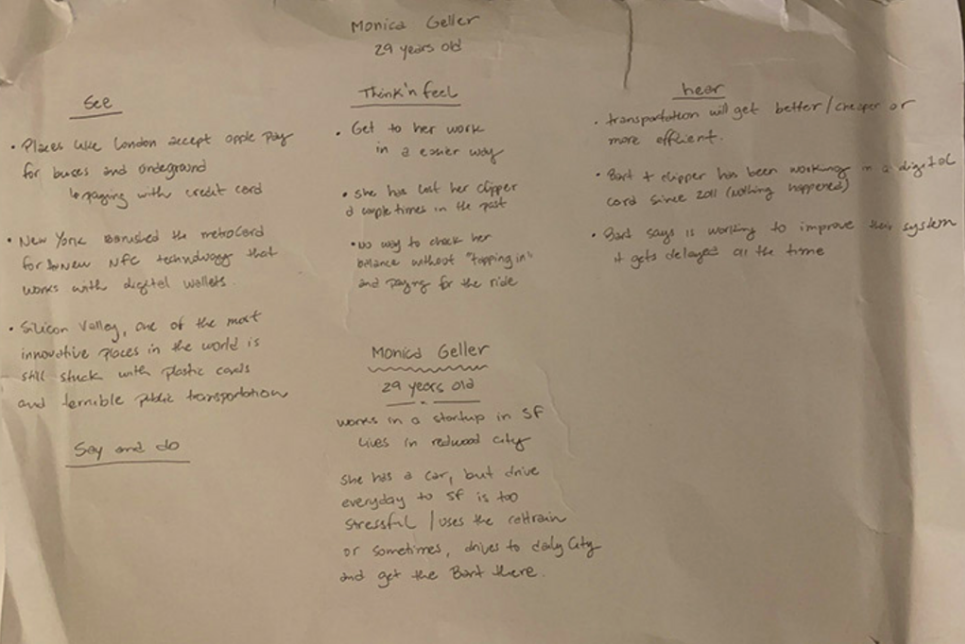 Monica Geller
29 years old
See
• Places like London accept apple pay
for buses and undeground
↳ paying with credit card
• New York the metrocard
for New NFC technology that
works with digital wallets.
• Silicon Valley, one of the most
innovative places in the world is
still stuck with plastic cards
and terrible public transportation
Say and do
Think'n feel
• Get to her work
in a easier way
• She has lost her clipper
a couple times in the past
• No way to check her
balance without "tapping in"
and paying for the ride
Monica Geller
29 years old
works in a startup in SF
Lives in redwood city
She has a car, but drive
everyday to SF is too
stressful / uses the caltrain
or sometimes, drives to daily City
and get the Bart there.
hear
• transportation will get better/cheaper or
more efficient.
• Bart + clipper has been working in a digital
card since 2011 (nothing happened)
• Bart says is working to improve their system
it gets delayed all the time